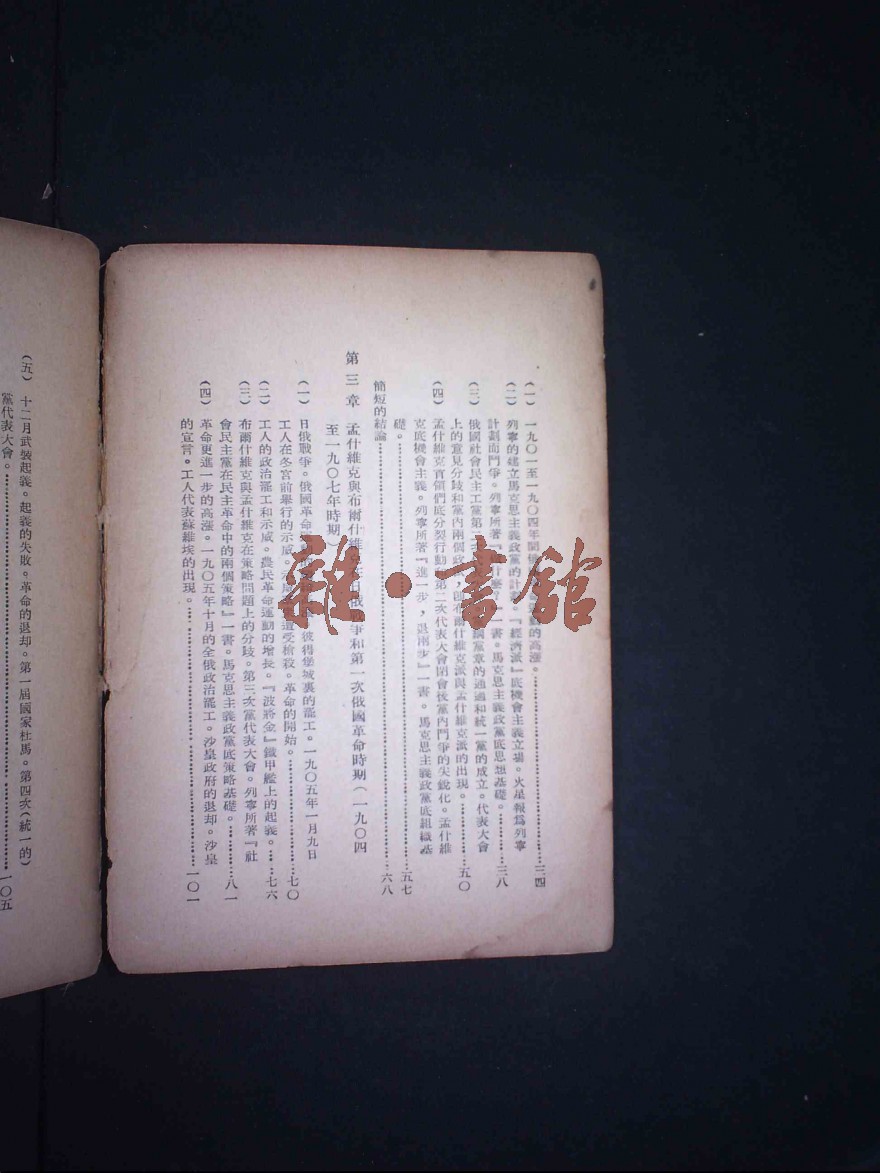 (一) 一九〇一至一九〇四年間俄國革命運動的高漲。 三四
(二) 列寧的建立馬克思主義政黨的計劃。『經濟派』底機會主義立場。火星報爲列寧
計劃而鬥爭。列寧所著『做什麼?』一書。馬克思主義政黨底思想基礎。 三八
(三) 俄國社會民主工黨第二次 綱黨章的通過和統一黨的成立。代表大會
上的意見分歧和黨內兩個政 布爾什維克派與孟什維克派的出現。 五〇
(四) 孟什維克首領們底分裂行動 第二次代表大會閉會後黨內鬥爭的尖銳化。孟什維
克底機會主義。列寧所著『進一步,退兩步』一書。馬克思主義政黨底組織基
礎。 五七
簡短的結論 六八
第三章 孟什維克與布爾什維克 日俄戰爭和第一次俄國革命時期(一九〇四
至一九〇七年時期)
(一) 日俄戰爭。俄國革命 彼得堡城裏的罷工。一九〇五年一月九日
工人在冬宮前舉行的示威。示威 遭受槍殺。革命的開始。 七〇
(二) 工人的政治罷工和示威。農民革命運動的增長。『波將金』鐵甲艦上的起義。 七六
(三) 布爾什維克與孟什維克在策略問題上的分歧。第三次黨代表大會。列寧所著『社
會民主黨在民主革命中的兩個策略』一書。馬克思主義政黨底策略基礎。 八一
(四) 革命更進一步的高漲。一九〇五年十月的全俄政治罷工。沙皇政府的退却。沙皇
的宣言。工人代表蘇維埃的出現。 一〇一
(五) 十二月武裝起義。起義的失敗。革命的退却。第一屆國家杜馬。第四次(統一的)
黨代表大會。 一〇五
雜·書館